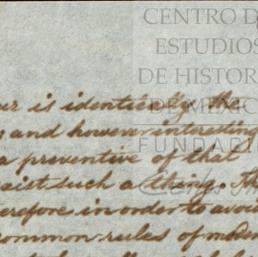 CENTRO D
ESTUDIOS
DE HISTOR
DE MEXICO
FUNDACI
is identically the
and however interesting
a preventive of that
such a thing. Th
therefore in order to avoi
common rules of